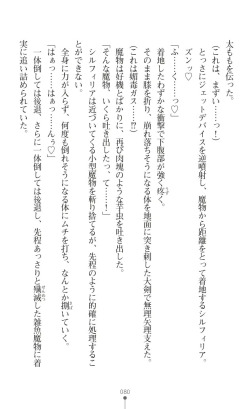 太ももを伝った。
(これは、まずいっ……！)
とっさにジェットデバイスを逆噴射し、魔物から距離をとって着地するシルフィリア。
ズンッ♡
「ふ……く……っ♡」
着地したわずかな衝撃で下腹部が強く疼く。
そのまま膝を折り、崩れ落ちそうになる体を地面に突き刺した大剣で無理矢理支えた。
(これは媚毒ガス……⁉)
魔物は好機とばかりに、再び肉塊のような芋虫を吐き出した。
「そんな魔物、いくら吐き出したっ、て……！」
シルフィリアは近づいてくる小型魔物を斬り捨てるが、先程のように的確に処理するこ
とができない。
全身に力が入らず、何度も倒れそうになる体にムチを打ち、なんとか捌いていく。
「はぁっ……はぁっ……んぅ♡」
一体倒しては後退、さらに一体倒しては後退し、先程あっさりと殲滅した雑魚魔物に着
実に追い詰められていた。
080